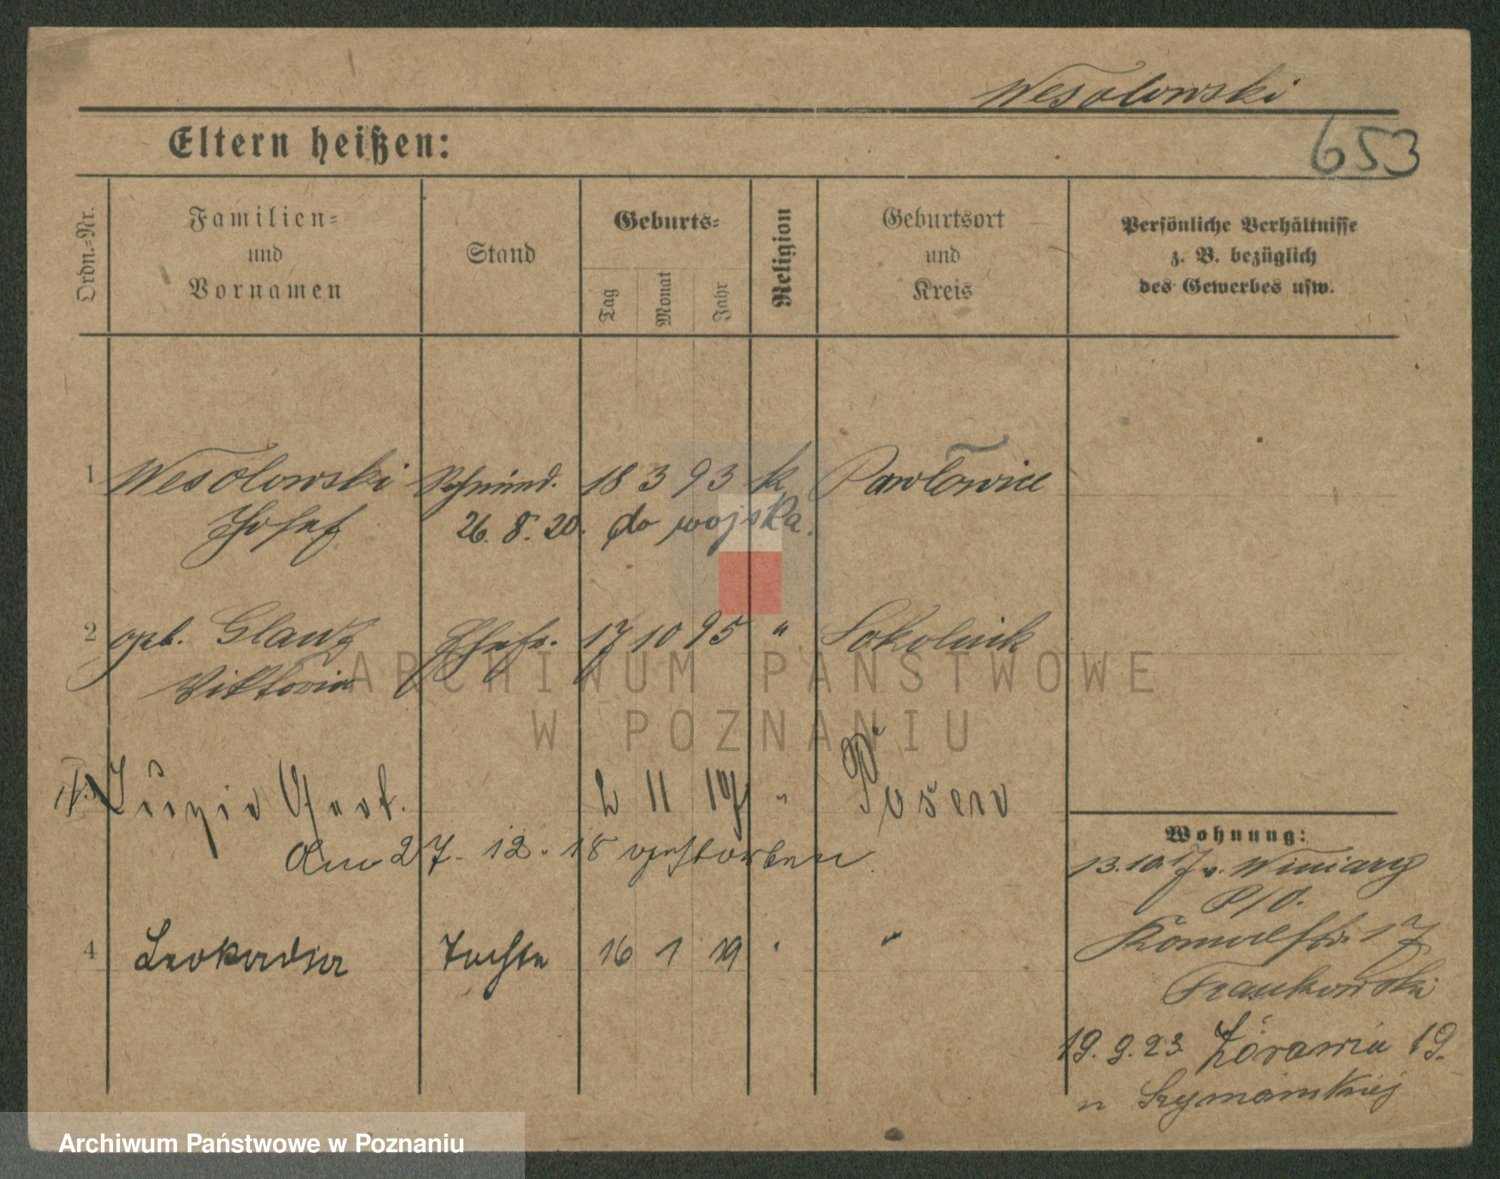 Wesołowski
653
Eltern heißen:
Ordn.=Nr.
Familien=
und
Vornamen
Stand
Geburts=
Tag
Monat
Jahr
Religion
Geburtsort
und
Kreis
Persönliche Verhältnisse
z. B. bezüglich
des Gewerbes usw.
1 Wesołowski 18 3 93 k Pawłowice
Josef 26. 8. 20. do wojska.
2 geb. Glanz Ehefr. 17 10 95 " Sokolnik
Viktoria
2 11 17 " Posen
Am 27. 12. 18 gestorben.
4 Leokadia Tochter 16 1 19 " "
Wohnung:
13.10.17 v. Winiary
P/O.
17
Frankowski
19. 9. 23 Żórawia 19.
u Szymańskiej
ARCHIWUM PAŃSTWOWE
W POZNANIU
Archiwum Państwowe w Poznaniu